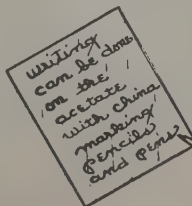 writing
can be done
on the
acetate
with china
marking
pencils
and pens